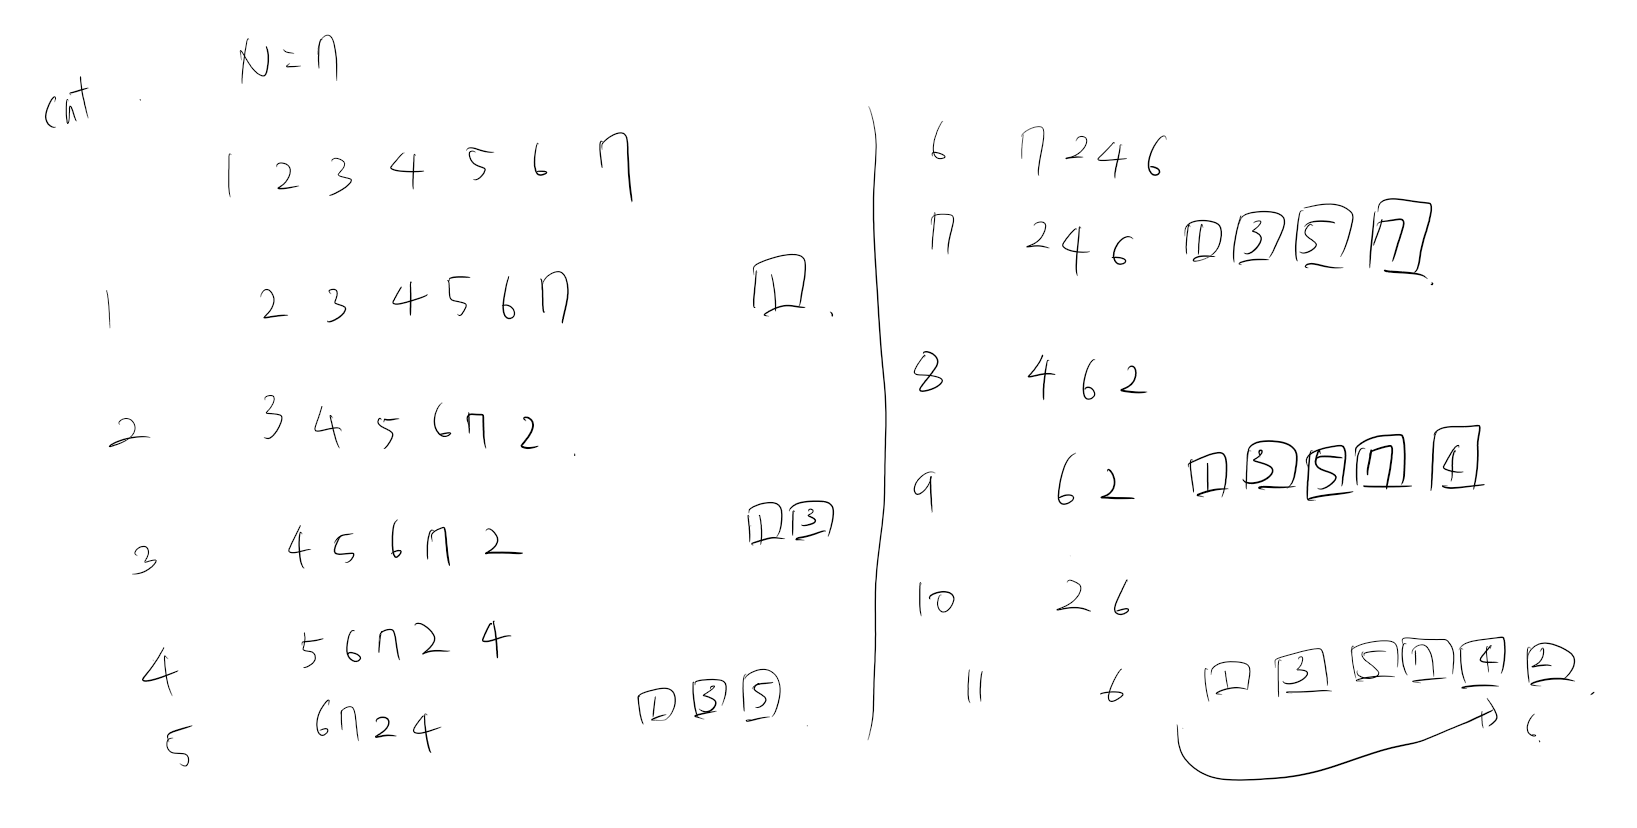 N=7
cnt
1 2 3 4 5 6 7
1 2 3 4 5 6 7 1
2 3 4 5 6 7 2
3 4 5 6 7 2 1 3
4 5 6 7 2 4
5 6 7 2 4 1 3 5
6 7 2 4 6
7 2 4 6 1 3 5 7
8 4 6 2
9 6 2 1 3 5 7 4
10 2 6
11 6 1 3 5 7 4 2
6